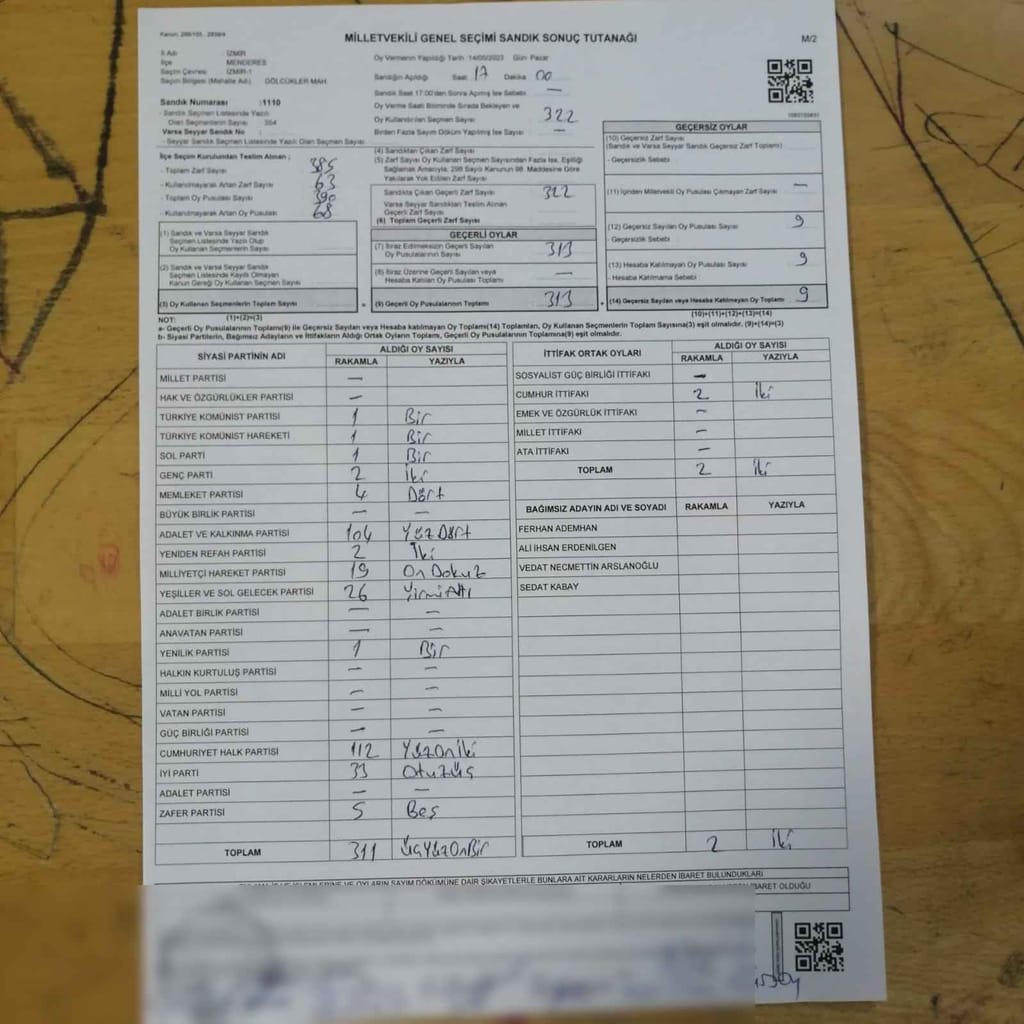 MİLLETVEKİLİ GENEL SEÇİMİ SANDIK SONUÇ TUTANAĞI
M/2
İl Adı İZMİR
İlçe MENDERES
Seçim Çevresi İZMİR-1
Seçim Bölgesi (Mahalle Adı) GÖLCÜKLER MAH.
Sandık Numarası :1110
Sandık Seçmen Listesinde Yazılı
Olan Seçmenlerin Sayısı 354
Varsa Seyyar Sandık No :
Seyyar Sandık Seçmen Listesinde Yazılı Olan Seçmen Sayısı
İlçe Seçim Kurulundan Teslim Alınan ;
- Toplam Zarf Sayısı 385
- Kullanılmayarak Artan Zarf Sayısı 63
- Toplam Oy Pusulası Sayısı 390
- Kullanılmayarak Artan Oy Pusulası 68
(1) Sandık ve Varsa Seyyar Sandık
Seçmen Listesinde Yazılı Olup
Oy Kullanan Seçmenlerin Sayısı
(2) Sandık ve Varsa Seyyar Sandık
Seçmen Listesinde Kayıtlı Olmayan
Kanun Gereği Oy Kullanan Seçmen Sayısı
(3) Oy Kullanan Seçmenlerin Toplam Sayısı
(1)+(2)=(3)
Oy Vermenin Yapıldığı Tarih 14/05/2023 Gün Pazar
Sandığın Açıldığı Saat 17 Dakika 00
Sandık Saat 17:00'den Sonra Açılmış İse Sebebi —
Oy Verme Saati Bitiminde Sırada Bekleyen ve
Oy Kullandırılan Seçmen Sayısı 322
Birden Fazla Sayım Döküm Yapılmış İse Sayısı —
(4) Sandıktan Çıkan Zarf Sayısı
(5) Zarf Sayısı Oy Kullanan Seçmen Sayısından Fazla İse, Eşitliği
Sağlamak Amacıyla; 298 Sayılı Kanunun 98. Maddesine Göre
Yakılarak Yok Edilen Zarf Sayısı
Sandıkta Çıkan Geçerli Zarf Sayısı 322
Varsa Seyyar Sandıktan Teslim Alınan
Geçerli Zarf Sayısı
(6) Toplam Geçerli Zarf Sayısı
GEÇERLİ OYLAR
(7) İtiraz Edilmeksizin Geçerli Sayılan
Oy Pusulalarının Sayısı 313
(8) İtiraz Üzerine Geçerli Sayılan veya
Hesaba Katılan Oy Pusulası Toplamı —
(9) Geçerli Oy Pusulalarının Toplamı 313
GEÇERSİZ OYLAR
(10) Geçersiz Zarf Sayısı
(Sandık ve Varsa Seyyar Sandık Geçersiz Zarf Toplamı)
- Geçersizlik Sebebi
(11) İçinden Milletvekili Oy Pusulası Çıkmayan Zarf Sayısı —
(12) Geçersiz Sayılan Oy Pusulası Sayısı 9
- Geçersizlik Sebebi
(13) Hesaba Katılmayan Oy Pusulası Sayısı 9
- Hesaba Katılmama Sebebi
(14) Geçersiz Sayılan veya Hesaba Katılmayan Oy Toplamı 9
(10)+(11)+(12)+(13)=(14)
NOT:
a- Geçerli Oy Pusulalarının Toplamı(9) ile Geçersiz Sayılan veya Hesaba katılmayan Oy Toplamı(14) Toplamları, Oy Kullanan Seçmenlerin Toplam Sayısına(3) eşit olmalıdır. (9)+(14)=(3)
b- Siyasi Partilerin, Bağımsız Adayların ve İttifakların Aldığı Ortak Oyların Toplamı, Geçerli Oy Pusulalarının Toplamına(9) eşit olmalıdır.
SİYASİ PARTİNİN ADI ALDIĞI OY SAYISI
RAKAMLA YAZIYLA
MİLLET PARTİSİ —
HAK VE ÖZGÜRLÜKLER PARTİSİ —
TÜRKİYE KOMÜNİST PARTİSİ 1 Bir
TÜRKİYE KOMÜNİST HAREKETİ 1 Bir
SOL PARTİ 1 Bir
GENÇ PARTİ 2 İki
MEMLEKET PARTİSİ 4 Dört
BÜYÜK BİRLİK PARTİSİ — —
ADALET VE KALKINMA PARTİSİ 104 Yüz Dört
YENİDEN REFAH PARTİSİ 2 İki
MİLLİYETÇİ HAREKET PARTİSİ 19 On Dokuz
YEŞİLLER VE SOL GELECEK PARTİSİ 26 Yirmi Altı
ADALET BİRLİK PARTİSİ — —
ANAVATAN PARTİSİ — —
YENİLİK PARTİSİ 1 Bir
HALKIN KURTULUŞ PARTİSİ — —
MİLLİ YOL PARTİSİ — —
VATAN PARTİSİ — —
GÜÇ BİRLİĞİ PARTİSİ — —
CUMHURİYET HALK PARTİSİ 112 Yüz On İki
İYİ PARTİ 33 Otuz üç
ADALET PARTİSİ — —
ZAFER PARTİSİ 5 Beş
TOPLAM 311 Üç Yüz On Bir
İTTİFAK ORTAK OYLARI ALDIĞI OY SAYISI
RAKAMLA YAZIYLA
SOSYALİST GÜÇ BİRLİĞİ İTTİFAKI —
CUMHUR İTTİFAKI 2 İki
EMEK VE ÖZGÜRLÜK İTTİFAKI —
MİLLET İTTİFAKI —
ATA İTTİFAKI —
TOPLAM 2 İki
BAĞIMSIZ ADAYIN ADI VE SOYADI RAKAMLA YAZIYLA
FERHAN ADEMHAN
ALİ İHSAN ERDENİLGEN
VEDAT NECMETTİN ARSLANOĞLU
SEDAT KABAY
TOPLAM 2 İki
VE OYLARIN SAYIM DÖKÜMÜNE DAİR ŞİKAYETLERLE BUNLARA AİT KARARLARIN NELERDEN İBARET BULUNDUKLARI
İBARET OLDUĞU